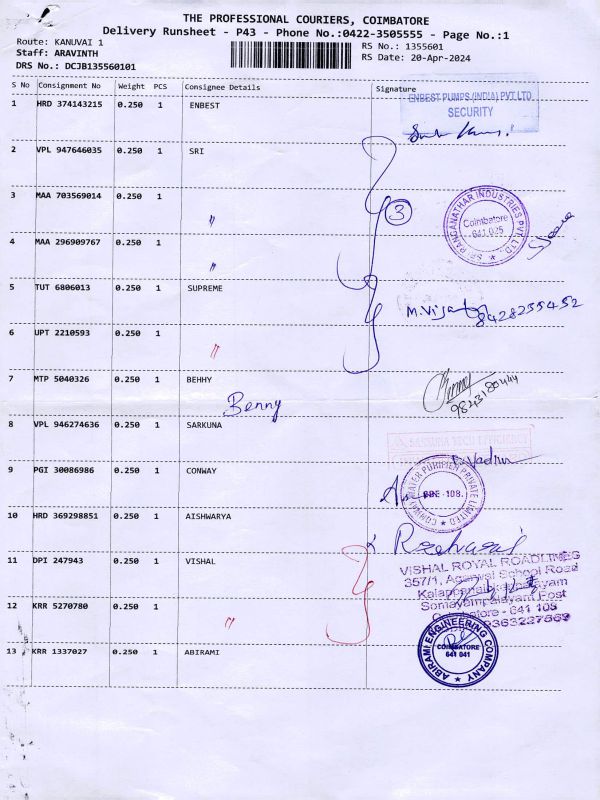 THE PROFESSIONAL COURIERS, COIMBATORE
Delivery Runsheet - P43 - Phone No.:0422-3505555 - Page No.:1
Route: KANUVAI 1
Staff: ARAVINTH
DRS No.: DCJB135560101
RS No.: 1355601
RS Date: 20-Apr-2024
S No Consignment No Weight PCS Consignee Details Signature
1 HRD 374143215 0.250 1 ENBEST
ENBEST PUMPS (INDIA) PVT LTD
SECURITY
2 VPL 947646035 0.250 1 SRI
3 MAA 703569014 0.250 1 〃
3
SRI RANGANATHAR INDUSTRIES PVT. LTD.
Coimbatore
641 025
4 MAA 296909767 0.250 1 〃
5 TUT 6806013 0.250 1 SUPREME
8428255452
6 UPT 2210593 0.250 1 〃
7 MTP 5040326 0.250 1 BEHHY
Benny
8 VPL 946274636 0.250 1 SARKUNA
9 PGI 30086986 0.250 1 CONWAY
CONWAY WATER PURIFIER PRIVATE LIMITED
10 HRD 369298851 0.250 1 AISHWARYA
11 DPI 247943 0.250 1 VISHAL
VISHAL ROYAL ROADLINES
357/1, Agarwal School Road
Somayampalayam Post
Coimbatore - 641 108
9363227569
12 KRR 5270780 0.250 1 〃
13 KRR 1337027 0.250 1 ABIRAMI
ABIRAMI ENGINEERING COMPANY
COIMBATORE
641 041